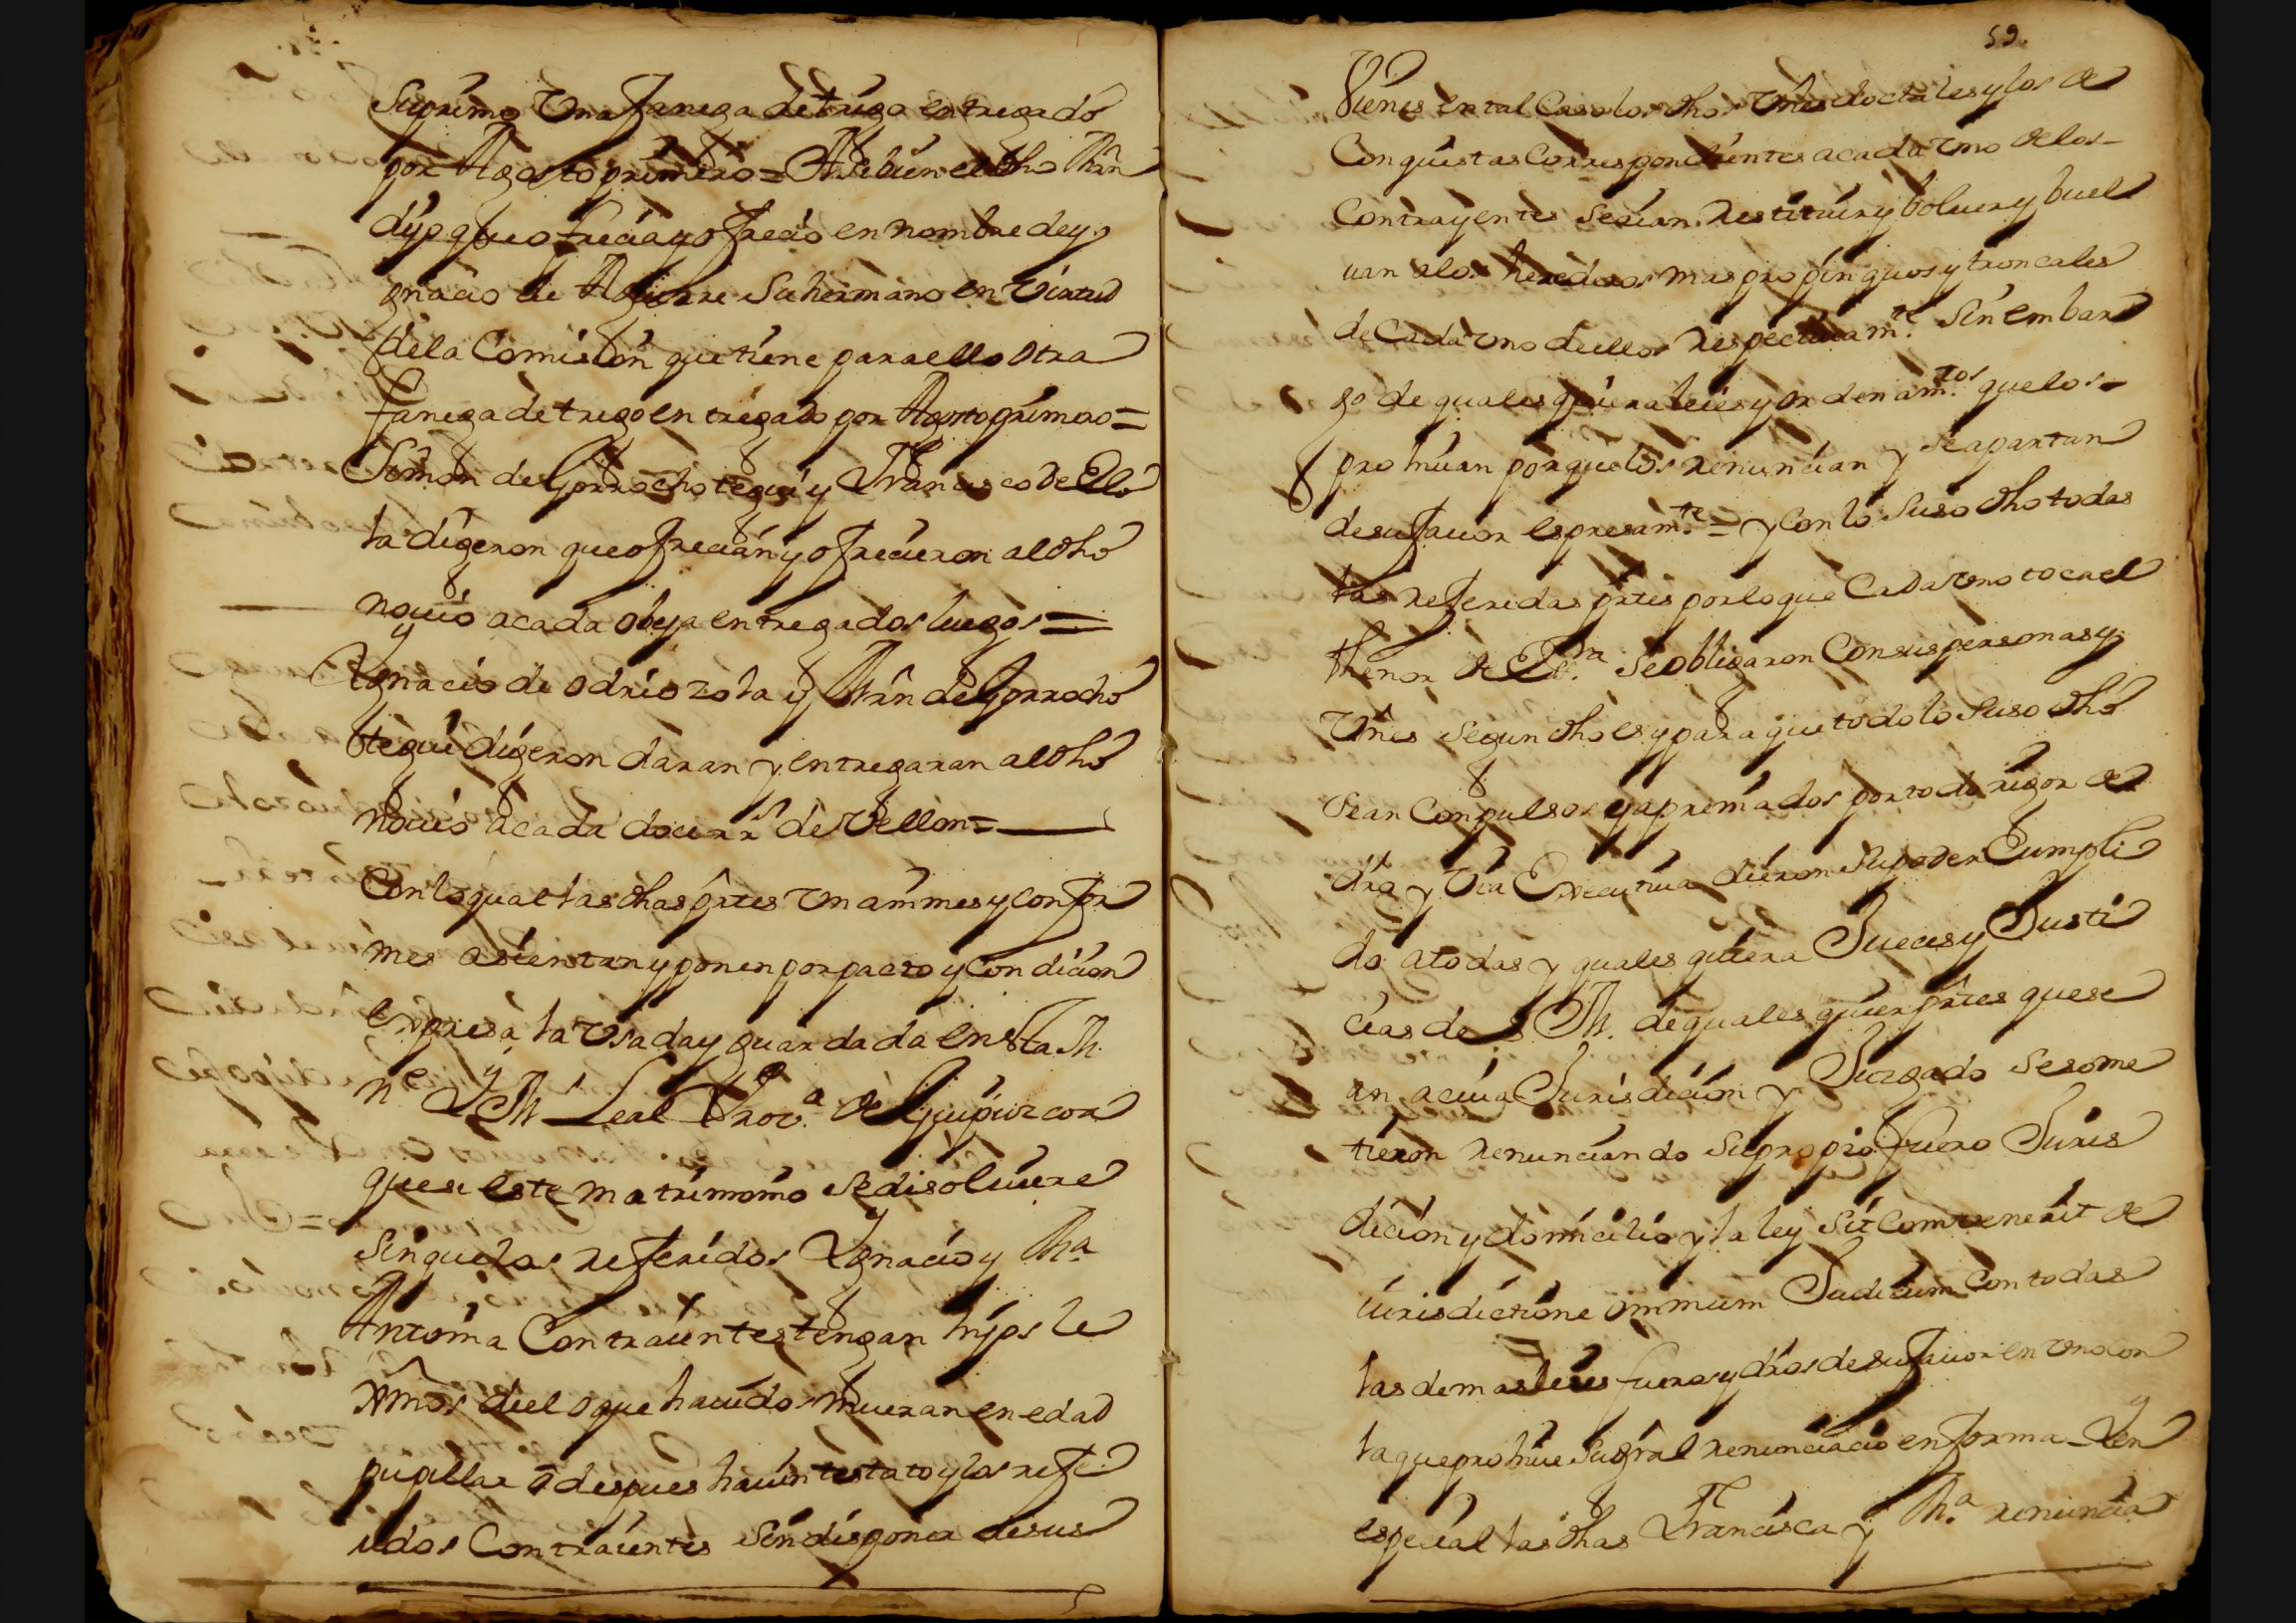 Suprimo Una fanega de trigo entregado
por Agosto primero = Asi bien el dho Mrn
dijo que ofrecia y ofrecio en nombre de y
gnacio de Aguirre Su hermano en Virtud
de la Comision que tiene para ello otra
fanega de trigo entregado por Agosto primero =
Simon de Gorrochotegui y Francisco de Elo
la digeron que ofrecian y ofrecieron al dho
novio a cada obeja entregados luego =
Ygnacio de Odriozola y Mrn de Gorrocho
tegui digeron daran y entregaran al dho
novio a cada doce rrs de Vellon =
Con lo qual las dhas partes Unanimes y confor
mes asientan y ponen por pacto y condicion
expresa la Usada y guardada en esta M.
N.e Y M. Leal Prov.a de Guipuzcoa
que si este matrimonio se disolviere
sin que los referidos Ygnacio y Ma
Antonia Contraientes tengan hijos le
xmos de el o que havidos mueran en edad
pupillar o despues havintestato y los refe
ridos Contraientes sin disponer de sus
59.
Vienes en tal Caso los dhos Vnes doctales y los de
Conquistas Correspondientes a cada Uno de los
Contrayentes Se aian restituir y bolver y buel
van a los herederos mas propinquos y troncales
de Cada Uno de ellos respectivam.te Sin embar
go de quales quiera leies y ordenam.tos que los
prohivan porque los renuncian y se apartan
de su favor espresam.te = y Con lo Suso dho todas
las referidas prtes por lo que Cada Uno toca el
thenor de Ess.ra Se obligaron Con sus personas y
Vnes segun dho es y para que todo lo Suso dho
sean Conpulsos y apremiados por todo rigor de
dro y Via Executiva dieron Su poder Cumpli
do a todas y quales quiera Jueces y Justi
cias de S. M. de quales quier prtes que se
an a cuia Jurisdicion y Juzgado se some
tieron renunciando su propio fuero Juris
dicion y domicilio y la ley Sit Convenerit de
iurisdictione omnium Judicum Con todas
las demas leies fueros y dros de su favor en Uno con
la que prohive la gral renunciacio en forma = Y en
especial las dhas Francisca y M.a renuncia